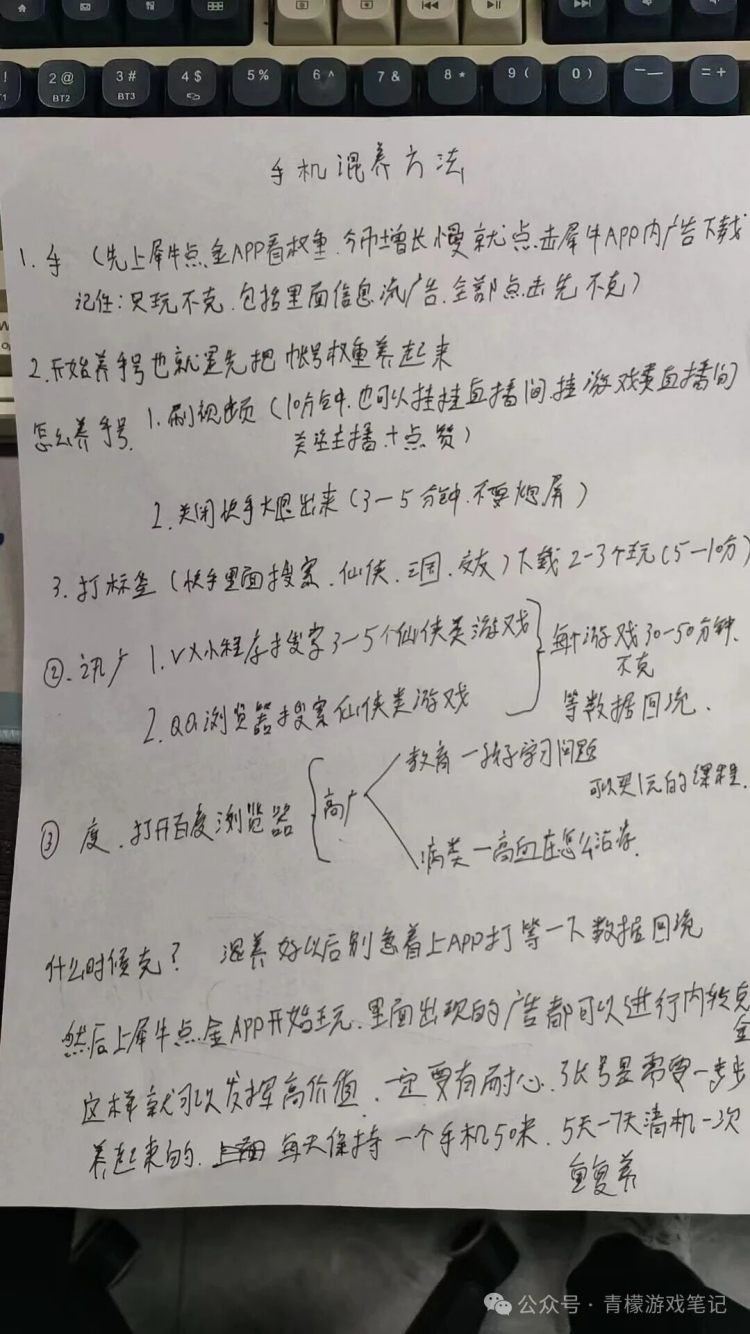 2 @
BT2
3 #
BT3
4 $
5 %
6 ^
7 &
8 *
9 (
0 )
— –
= +
手机混养方法
1. 手（先上犀牛点金APP看权重.今币增长慢就点击犀牛APP内广告下载
记住:只玩不克.包括里面信息流广告.全部点击先不克）
2.开始养手号也就是先把帐号权重养起来
怎么养手号.
1.刷视频（10分钟.也可以挂挂直播间.挂游戏类直播间
关注主播+点赞）
2.关闭快手大退出来（3-5分钟.不要熄屏）
3.打标签（快手里面搜索.仙侠.三国.交友）下载2-3个玩（5-10分）
②.讯广 1.VX小程序搜索3-5个仙侠类游戏
2.QQ浏览器搜索仙侠类游戏
每个游戏30-50分钟.
不克
等数据回流.
③ 度.打开百度浏览器
高广
教育一孩子学习问题
可以买1元的课程.
病类一高血压怎么治疗.
什么时候克? 混养好以后别急着上APP打等一下数据回流
然后上犀牛点金APP开始玩.里面出现的广告都可以进行内转克
金
这样就可以发挥高价值.一定要有耐心.张号是需要一步步
养起来的. 每天保持一个手机50米.5天-7天清机一次
重复养
公众号·青檬游戏笔记